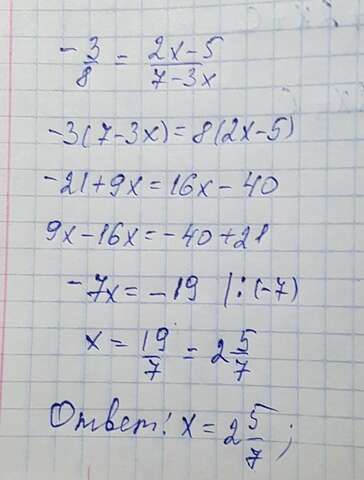 -3/8 = (2x-5)/(7-3x)
-3(7-3x)=8(2x-5)
-21+9x=16x-40
9x-16x=-40+21
-7x=-19 |:(-7)
x=19/7=2 5/7
Ответ: x=2 5/7;